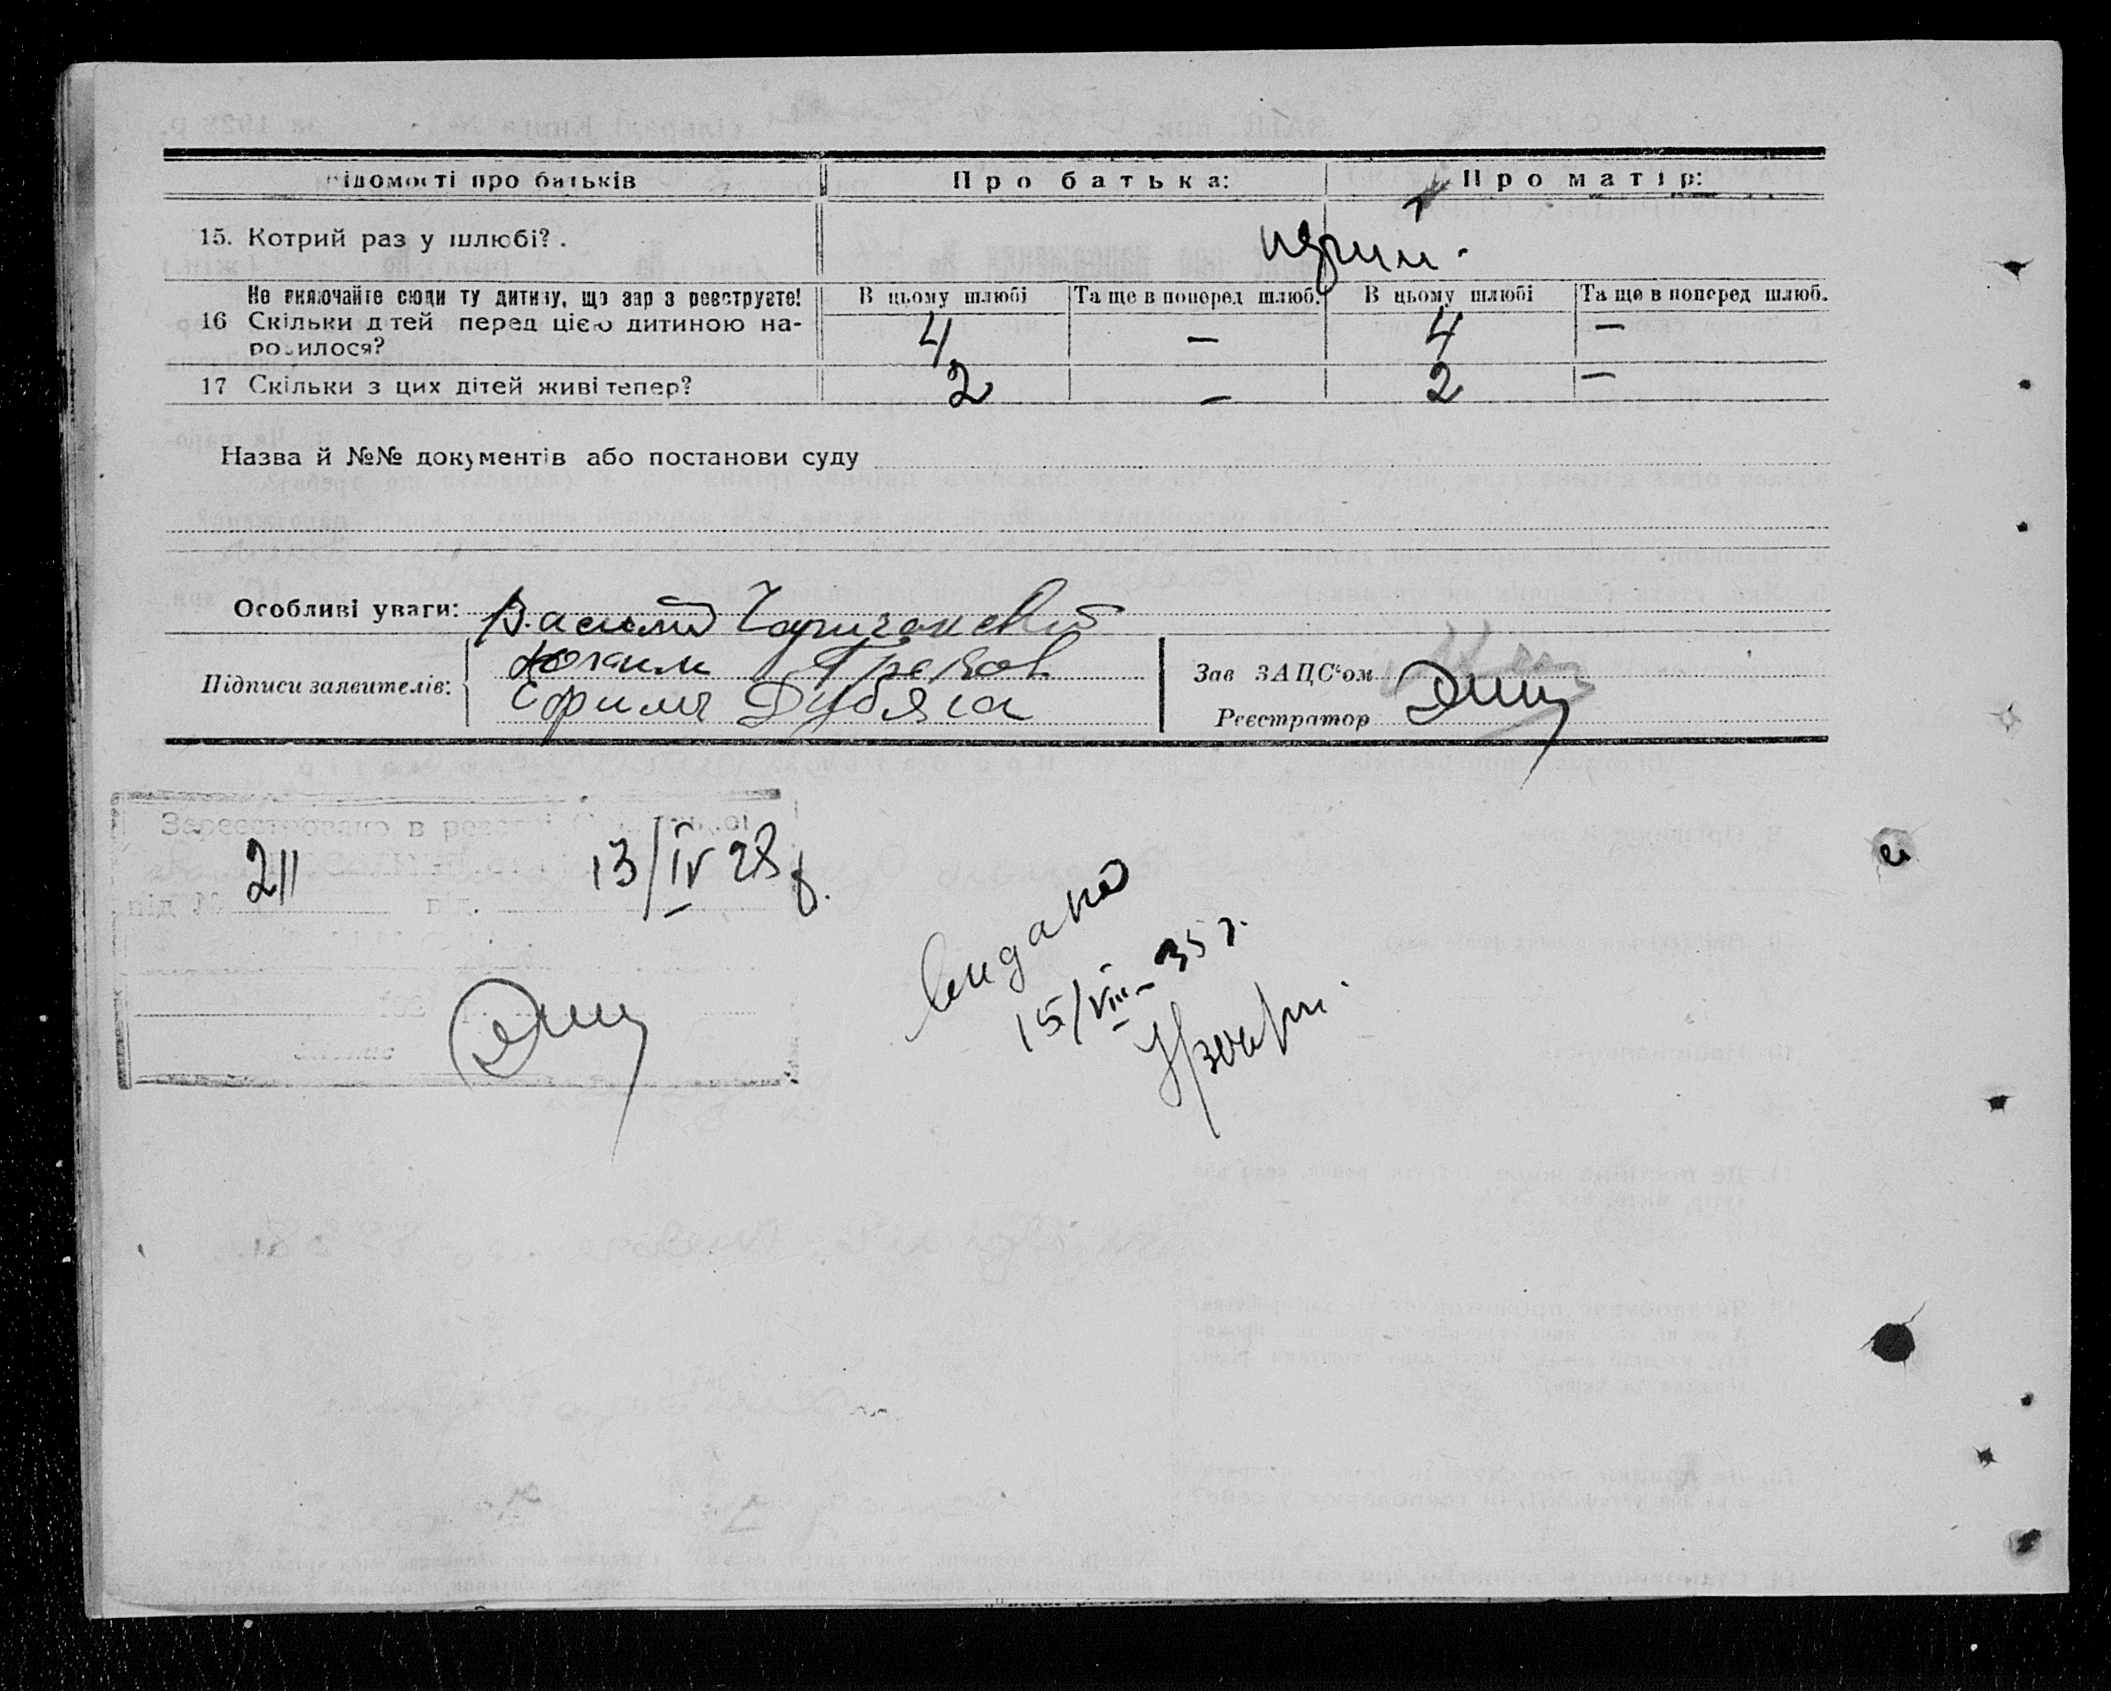 Відомості про батьків Про батька: Про матір:
15. Котрий раз у шлюбі? . перший.
Не включайте сюди ту дитину, що зараз реєструєте! В цьому шлюбі Та ще в поперед шлюб. В цьому шлюбі Та ще в поперед шлюб.
16 Скільки дітей перед цією дитиною на-
родилося? 4 – 4 –
17 Скільки з цих дітей живі тепер? 2 – 2 –
Назва й №№ документів або постанови суду
Особливі уваги: Василий
Підписи заявителів: Юхим Греков
Ефим Дубяга
Зав ЗАЦС‘ом
Реєстратор
Зареєстровано в реєстрі
під № 211 13/IV 28 р.
видано
15/VIII–35 г.